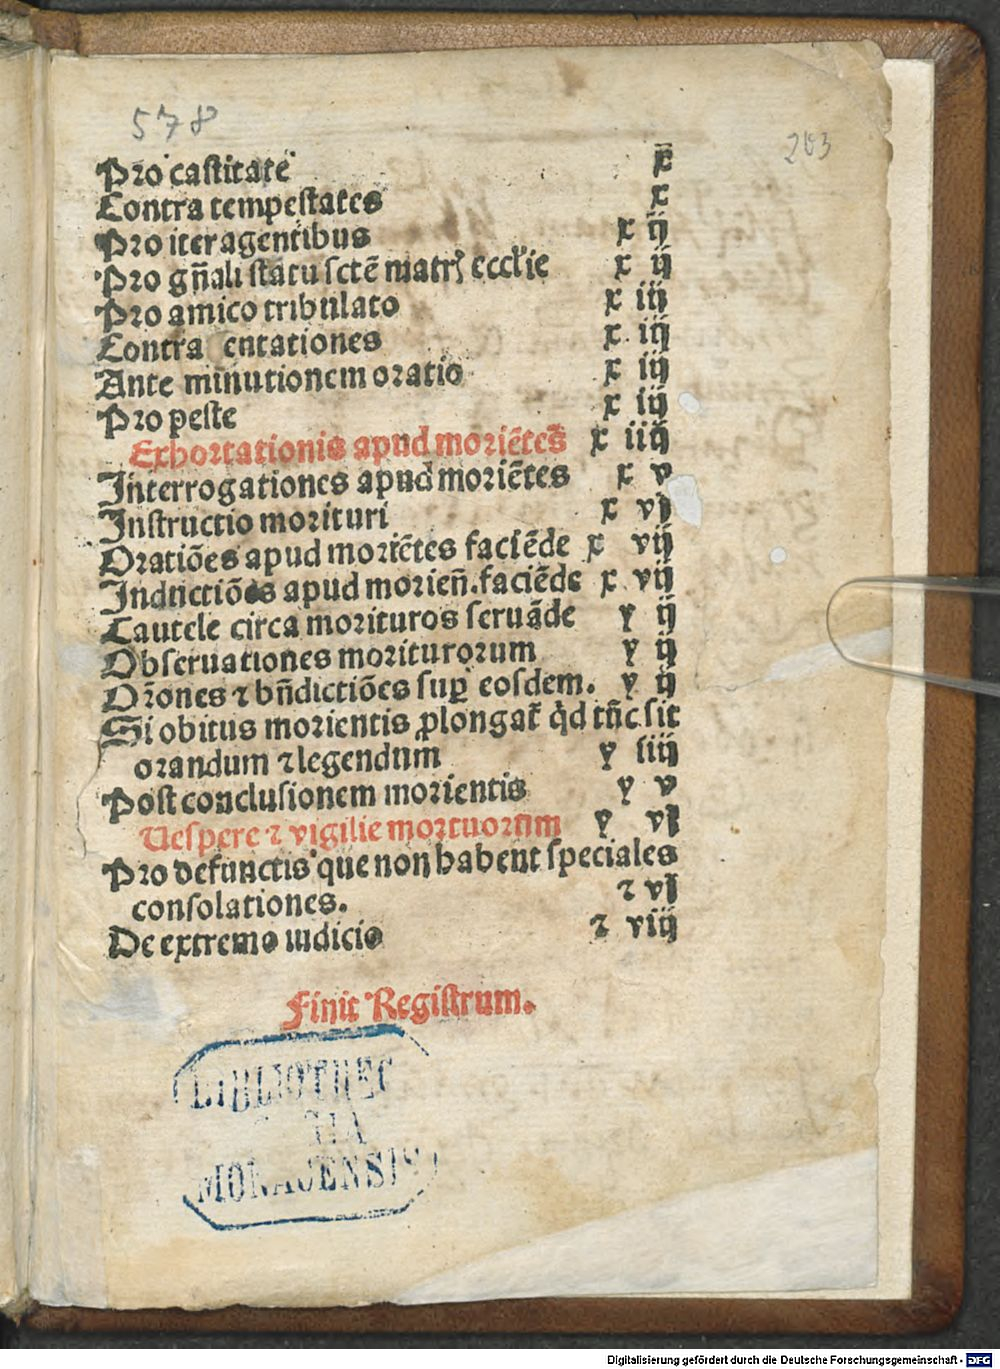 578
203
Pro castitate x
Contra tempestates x
Pro iter agentibus x ij
Pro gñali statu sctē matrꝭ eccl'ie x ij
Pro amico tribulato x iij
Contra entationes x iij
Ante minutionem oratio x iij
Pro peste x iij
Exhortationis apud moriētes x iiij
Interrogationes apud moriētes x v
Instructio morituri x vj
Oratiões apud moriētes faciēde x vij
Inductiões apud morieñ. faciēde x vij
Cautele circa morituros seruāde y ij
Obseruationes moriturorum y ij
Or̄ones ⁊ bñdictiões suꝑ eosdem. y ij
Si obitus morientis ꝓlongat᷑ qd̓ tūc sit
orandum ⁊ legendum y iiij
Post conclusionem morientis y v
Uespere ⁊ vigilie mortuorum y vj
Pro defunctis que non habent speciales
consolationes. ⁊ vj
De extremo iudicio ⁊ viij
Finit Registrum.
BIBLIOTHEC
GIA
MONACENSIS
Digitalisierung gefördert durch die Deutsche Forschungsgemeinschaft - DFG